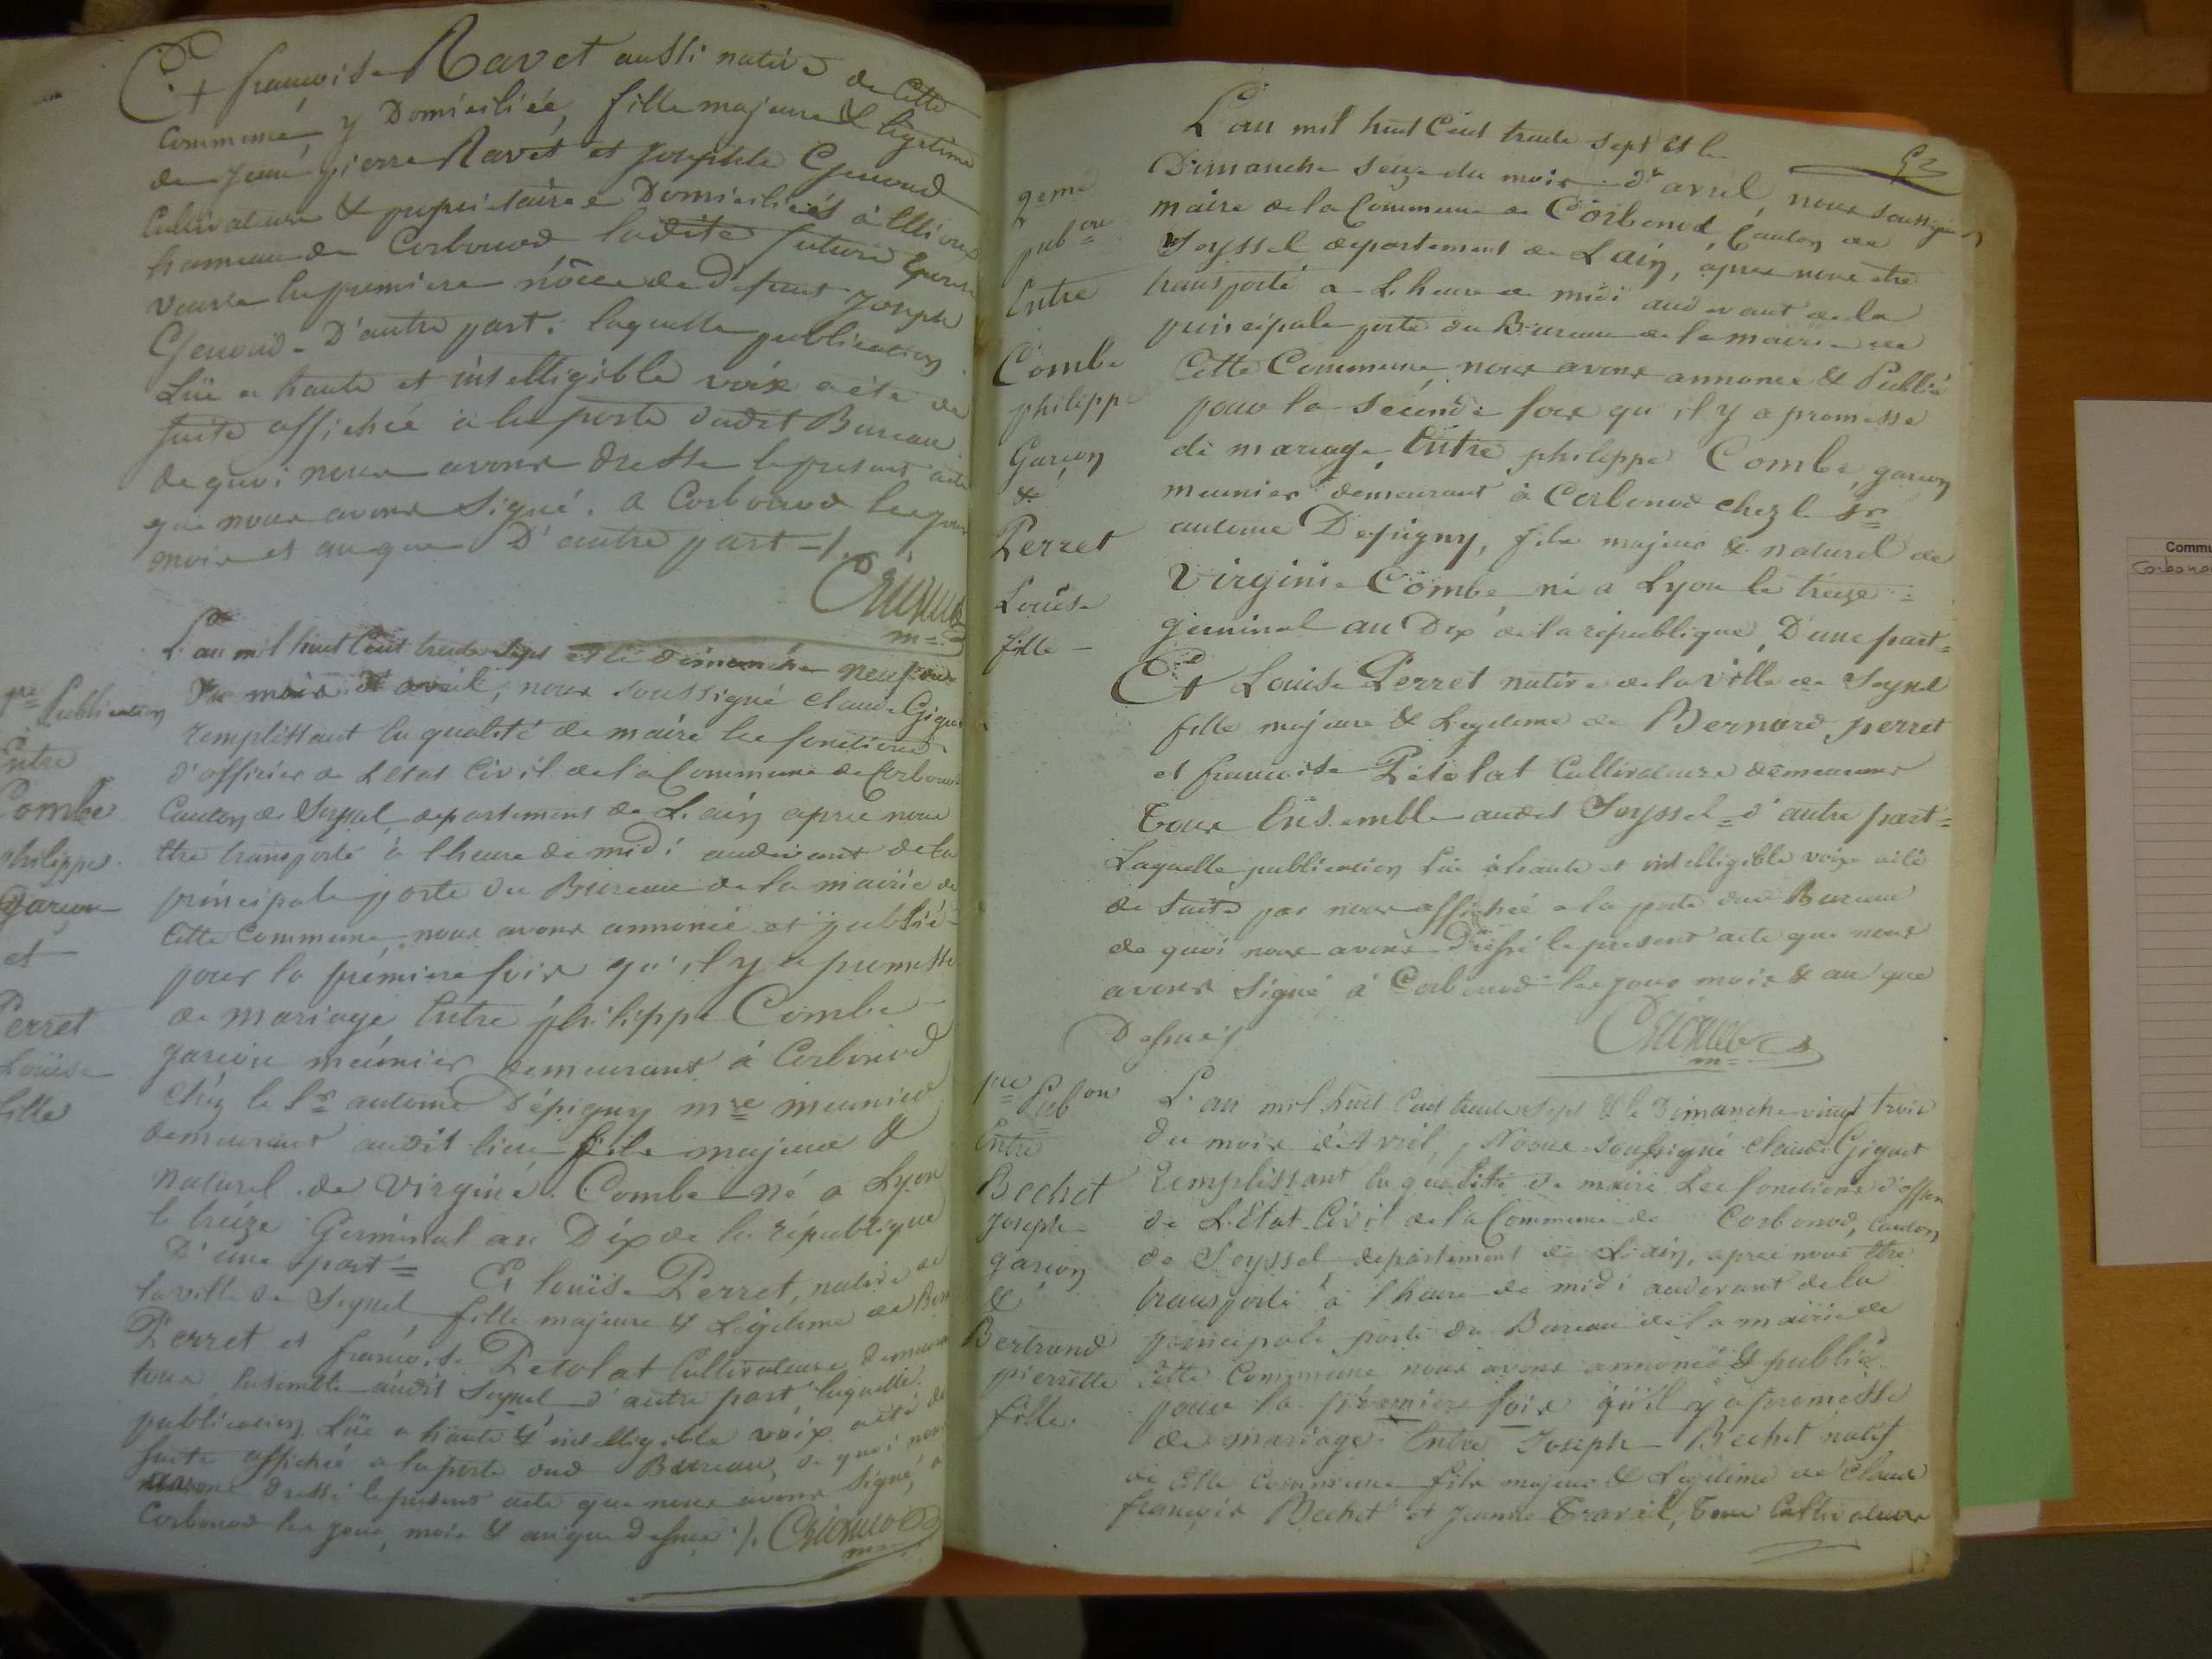 Et francoise Ravet aussi native de Cette
Commune, y Domiciliée, fille majeure & légitime
de jean pierre Ravet et Josephte Genoud
Cultivateurs & propriétaires Domiciliés à
hameau de Corbonod ladite future Epouse
veuve en premiere nôce de Défunt Joseph
Genoud. D'autre part. laquelle publication
Lüe a haute et intelligible voix a été de
suite affichée à la porte dudit Bureau
de quoi nous avons dressé le présent acte
que nous avons Signé. a Corbonod les jour
mois et an que D'autre part ./.
m=
pre Publication
Entre
Combe
philippe
garçon
et
Perret
Louise
fille
L'an mil huit Cent trente sept et le dimanche neuf
du mois d'avril, nous soussigné claude Giguet
remplissant en qualité de maire les fonctions
d'officier de Letat Civil de la Commune de Corbonod
Canton de Seyssel, departement de L'ain après nous
être transporté à l'heure de midi audevant de la
principale porte du Bureau de la mairie de
Cette Commune, nous avons annoncé et publié
pour la prémiere fois qu'il y a promesse
de mariage Entre philippe Combe
garçon meúnier demeurant à Corbonod
chéz le Sr antoine Dépigny mre meunier
demeurant audit lieu fils majeur &
naturel de Virginie Combe né a Lyon
le treize Germinal an Dix de la république
D'une part = Et louise Perret, native de
la ville de Seyssel, fille majeure & Légitime de
Perret et francoise Petolat Cultivateurs demeurant
tous Ensemble audit Seyssel d'autre part, laquelle
publication Lüe a haute & intelligible voix a été de
suite affichée a la porte dud Bureau, de quoi nous
avons dressé le présent acte que nous avons Signé, a
Corbonod les jour, mois & an que dessus ./.
m=
2eme
pubon
Entre
Combe
philippe
Garçon
&
Perret
Louise
fille
L'an mil huit Cent trente sept et le
Dimanche seize du mois d'avril, nous soussigné
maire de la Commune de Corbonod Canton de
Seyssel departement de L'ain, apres nous etre
transporté a L'heure de midi audevant de la
principale porte du Bureau de la mairie de
Cette Commune, nous avons annoncé & Publié
pour la séconde fois qu'il y a promesse
de mariage Entre philippe Combe, garçon
meunier demeurant à Corbonod chez le Sr
antoine Depigny, fils majeur & naturel de
Virginie Combe né a Lyon le treize =
germinal an Dix de la république, D'une part =
Et Louise Perret native de la ville de Seyssel
fille majeure & Legitime de Bernard perret
et francoise Petolat Cultivateurs demeurant
tous Ensemble audit Seyssel = d'autre part =
Laquelle publication Lüe à haute et intelligible voix a été
de suite par nous affichée a la porte dud Bureau
de quoi nous avons Dressé le présent acte que nous
avons Signé à Corbonod les jour mois & an que
Dessus
m=
pre Pubon
Entre
Bechet
Joseph
garçon
&
Bertrand
pierrette
fille.
L'an mil huit Cent trente sept & le Dimanche vingt trois
du mois d'Avril, Nous soussigné claude Giguet
Remplissant en qualité de maire Les fonctions d'officier
de L'Etat Civil de la Commune de Corbonod, Canton
de Seyssel departement de L'ain, après nous être
transporté à l'heure de midi audevant de la
principale porte du Bureau de la mairie de
Cette Commune nous avons annoncé & publié
pour la premiere fois qu'il y a promesse
de mariage Entre Joseph Bechet natif
de Cette Commune fils majeur & Légitime de Claude
françois Bechet et Jeanne Travail, tous Cultivateurs
Commu
Corbono